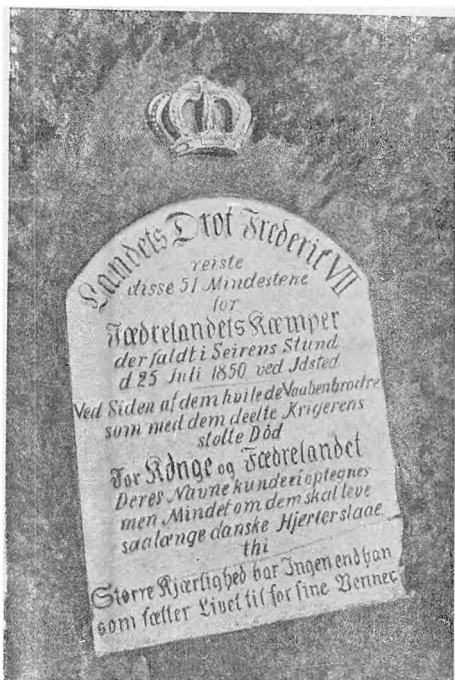 Landets Drot Frederik VII
reiste
disse 51 Mindestene
for
Fædrelandets Kæmper
der faldt i Seirens Stund
d 25 Juli 1850 ved Idsted
Ved Siden af dem hvile de Vaabenbrødre
som med dem deelte Krigerens
stolte Död
For Konge og Fædrelandet
Deres Navne kunde ei optegnes
men Mindet om dem skal leve
saa længe danske Hjerter slaae
thi
Större Kjærlighed har Ingen end han
som sætter Livet til for sine Venner